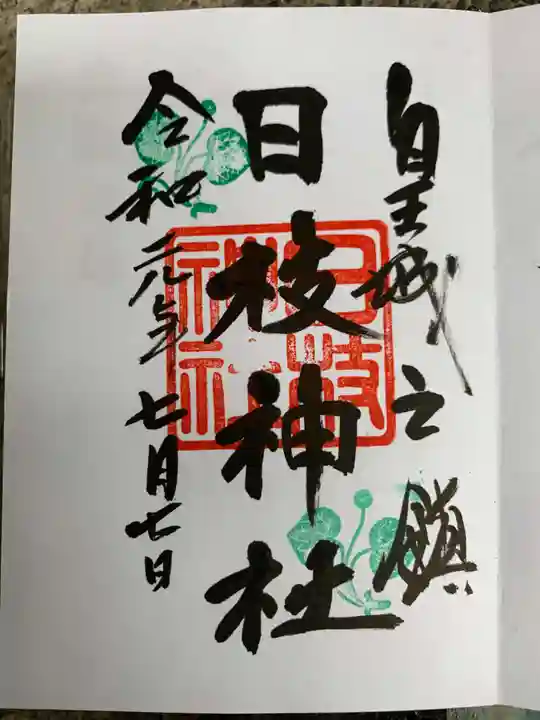 皇城之鎮
日枝神社
令和元年七月七日
日枝
神社